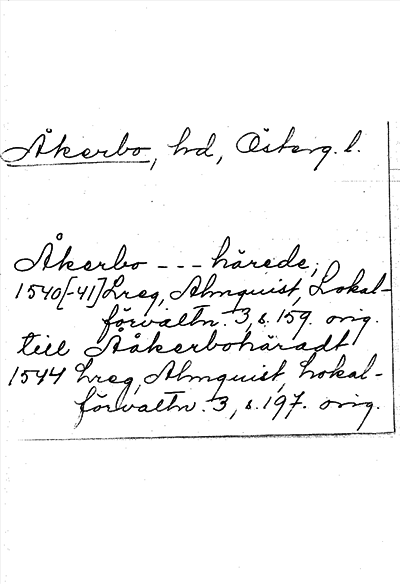 Åkerbo, hd, Österg. l.
Åkerbo --- härede,
1540[-41] Lreg, Almquist, Lokal-
förvaltn. 3, s. 159. orig.
till Aåkerbohäradt
1544 Lreg, Almquist, Lokal-
förvaltn. 3, s. 197. orig.